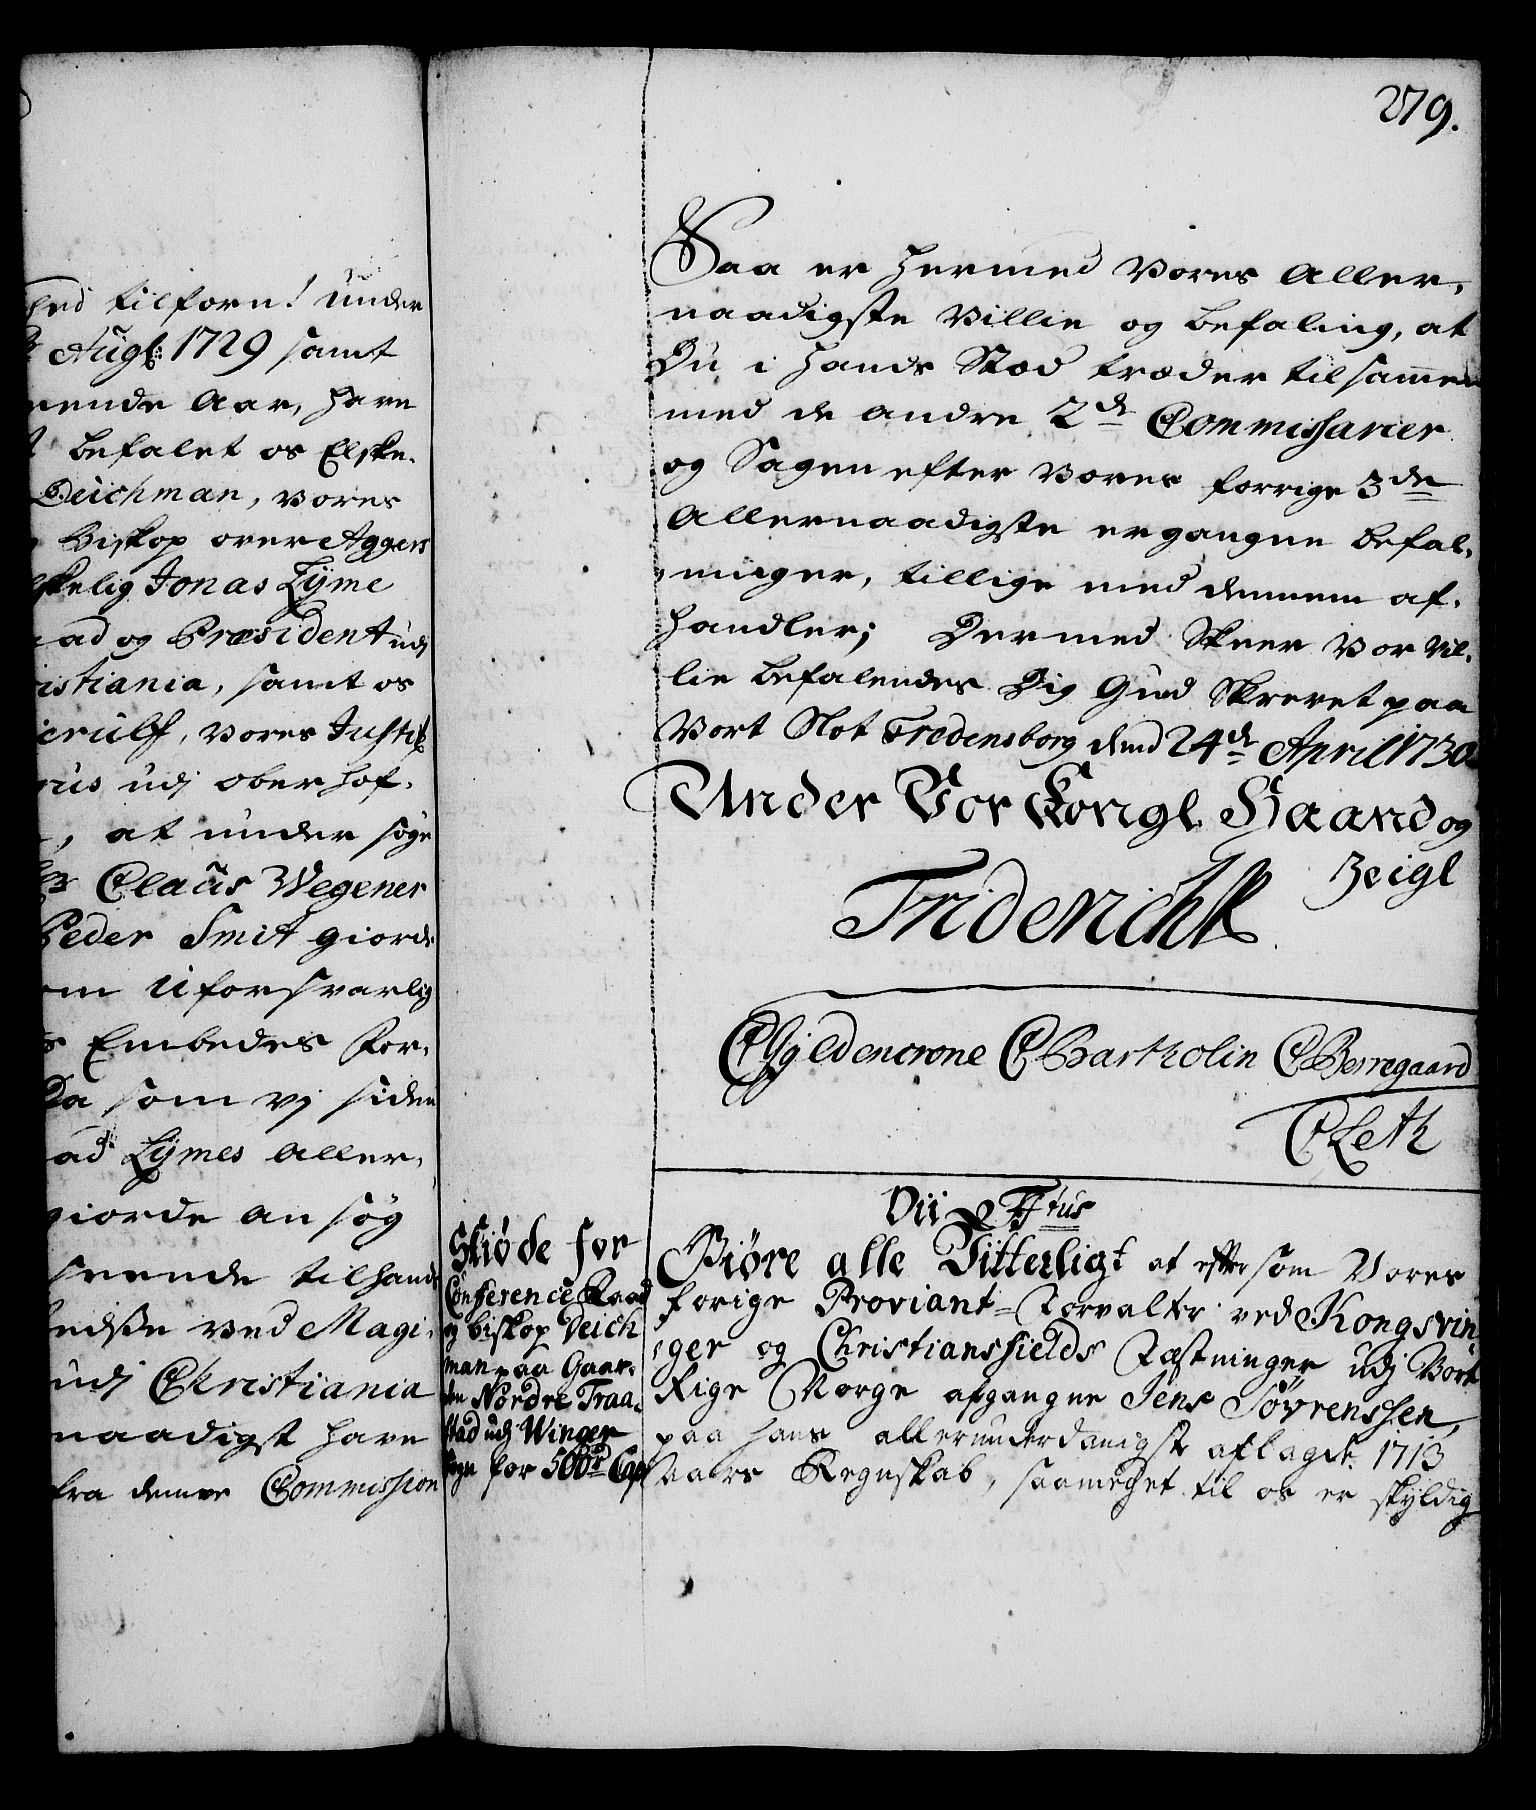 279.
hed tilforn! under
Augt: 1729 samt
rende Aar, have
befalet os Elske-
Deichman, vores
Biskop over Aggers
skelig Jonas Lÿme
aad og Præsident udj
istiania, samt os
ierulf, vores Justitz
rus udj oberhof-
, at under søge
Claùs Wegener
Peder Smit giorde
om uforsvarlig
s Embedes For-
Da som vj siden
ad Lÿmes Aller,
giorde an søg
sende tilhand
hedsse ved Magi-
udj Christiania
naadigst have
fra denne Commission
Saa er hermed Vores Aller,
naadigste Villie og befaling, at
Du i hands Stæd træder tilsammen
med de andre 2de Commissarier
og Sagen efter Vores forrige 3de
Allernaadigste ergangne befal,
ninger, tillige med dennem af-
handler; Dermed Skeer Vor Vil-
lie befalendes Dig Gud Skrevet paa
Vort Slot Fredensborg dend 24de April 1730
Under Vor Kongl. Haand og
Zeigl
Friderich R
C Gÿldencrone C Bartholin C Berregaard
C Leth
Skiøde for
Conference Raad
og biskop Deich
man paa Gaar-
den Nordre Traa-
stad udj Winger
Sogn for 500rd Cap
Vii F 4tus
Giøre alle Vitterligt at efftersom Vores
forige Proviant-Forvalter ved Kongsvin
ger og Christiansfields Fæstninger udj Vort
Rige Norge afgangne Jens Sövrenssen,
paa hans allerunderdanigst aflagde 1713
aars Regnskab, saameget til os er skÿldig